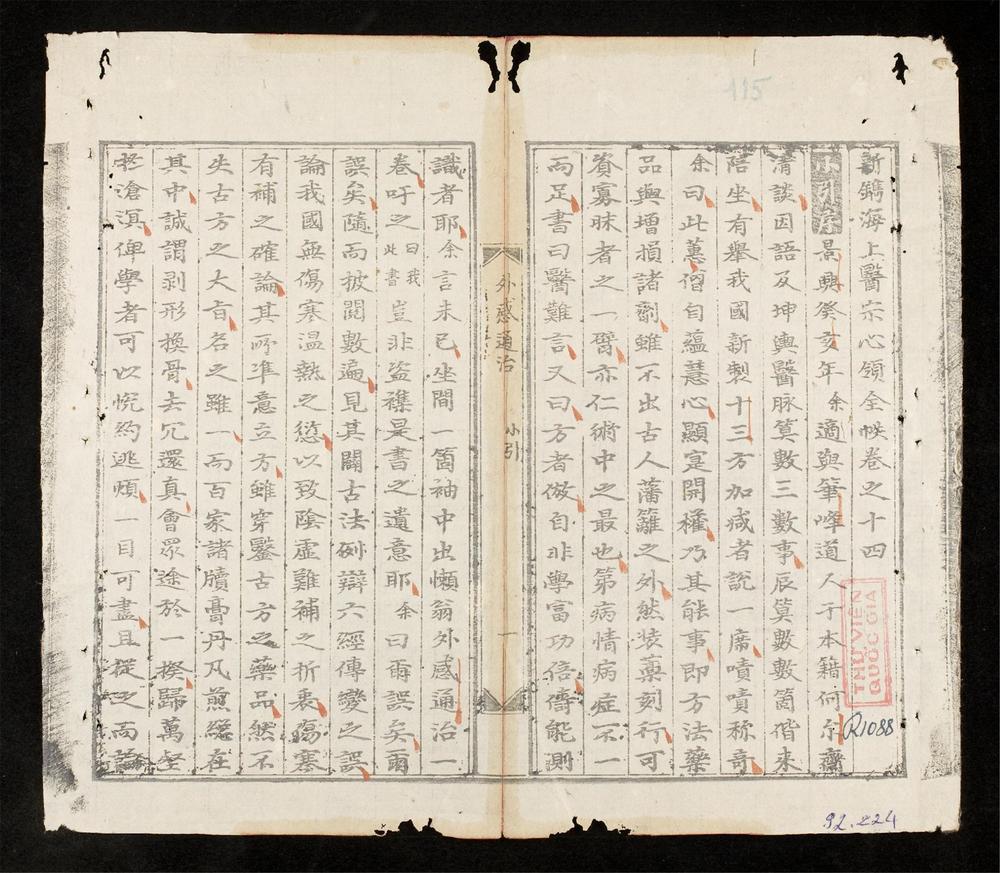 新鐫海上醫宗心領全帙卷之十四
小引 景興癸亥年余適與筆峰道人于本籍何尔齋
清談因語及坤輿醫脉筭數三數事辰筭數數箇偕来
陪坐有舉我國新製十三方加减者說一席嘖嘖称奇
余曰此蕙僧自蘊慧心顯寔開權乃其能事即方法藥
品與增損諸劑雖不出古人藩籬之外然装藥刻行可
資寡昧者之一臂亦仁術中之最也第病情病症不一
而足書曰醫難言又曰方者倣自非學富功倍儔能測
外感通治 小引 一
識者耶余言未已坐間一箇袖中出懶翁外感通治一
卷吁之曰我此書豈非盜襍是書之遺意耶余曰爾誤矣爾
誤矣隨而披閱數遍見其闢古法例辯六經傳變之誤
論我國無傷寒温熱之愆以致陰虚難補之折衷傷寒
有補之確論其所準意立方雖穿鑿古方之藥品然不
失古方之大旨名之雖一而百家諸牘膏丹凡煎總在
其中誠謂剥形換骨去冗還真會眾途於一揆歸萬壑
於滄溟俾學者可以悦約逃煩一目可盡且從之而論
THƯ VIỆN
QUỐC GIA
R1088
92.224
115